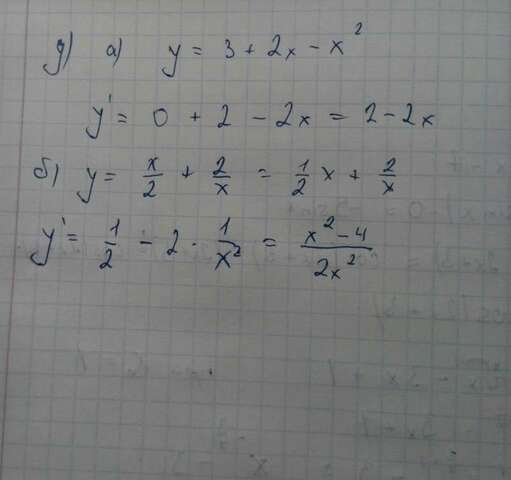 д) а) y = 3 + 2x - x²
y' = 0 + 2 - 2x = 2 - 2x
б) y = x/2 + 2/x = 1/2 x + 2/x
y' = 1/2 - 2 · 1/x² = (x² - 4)/(2x²)